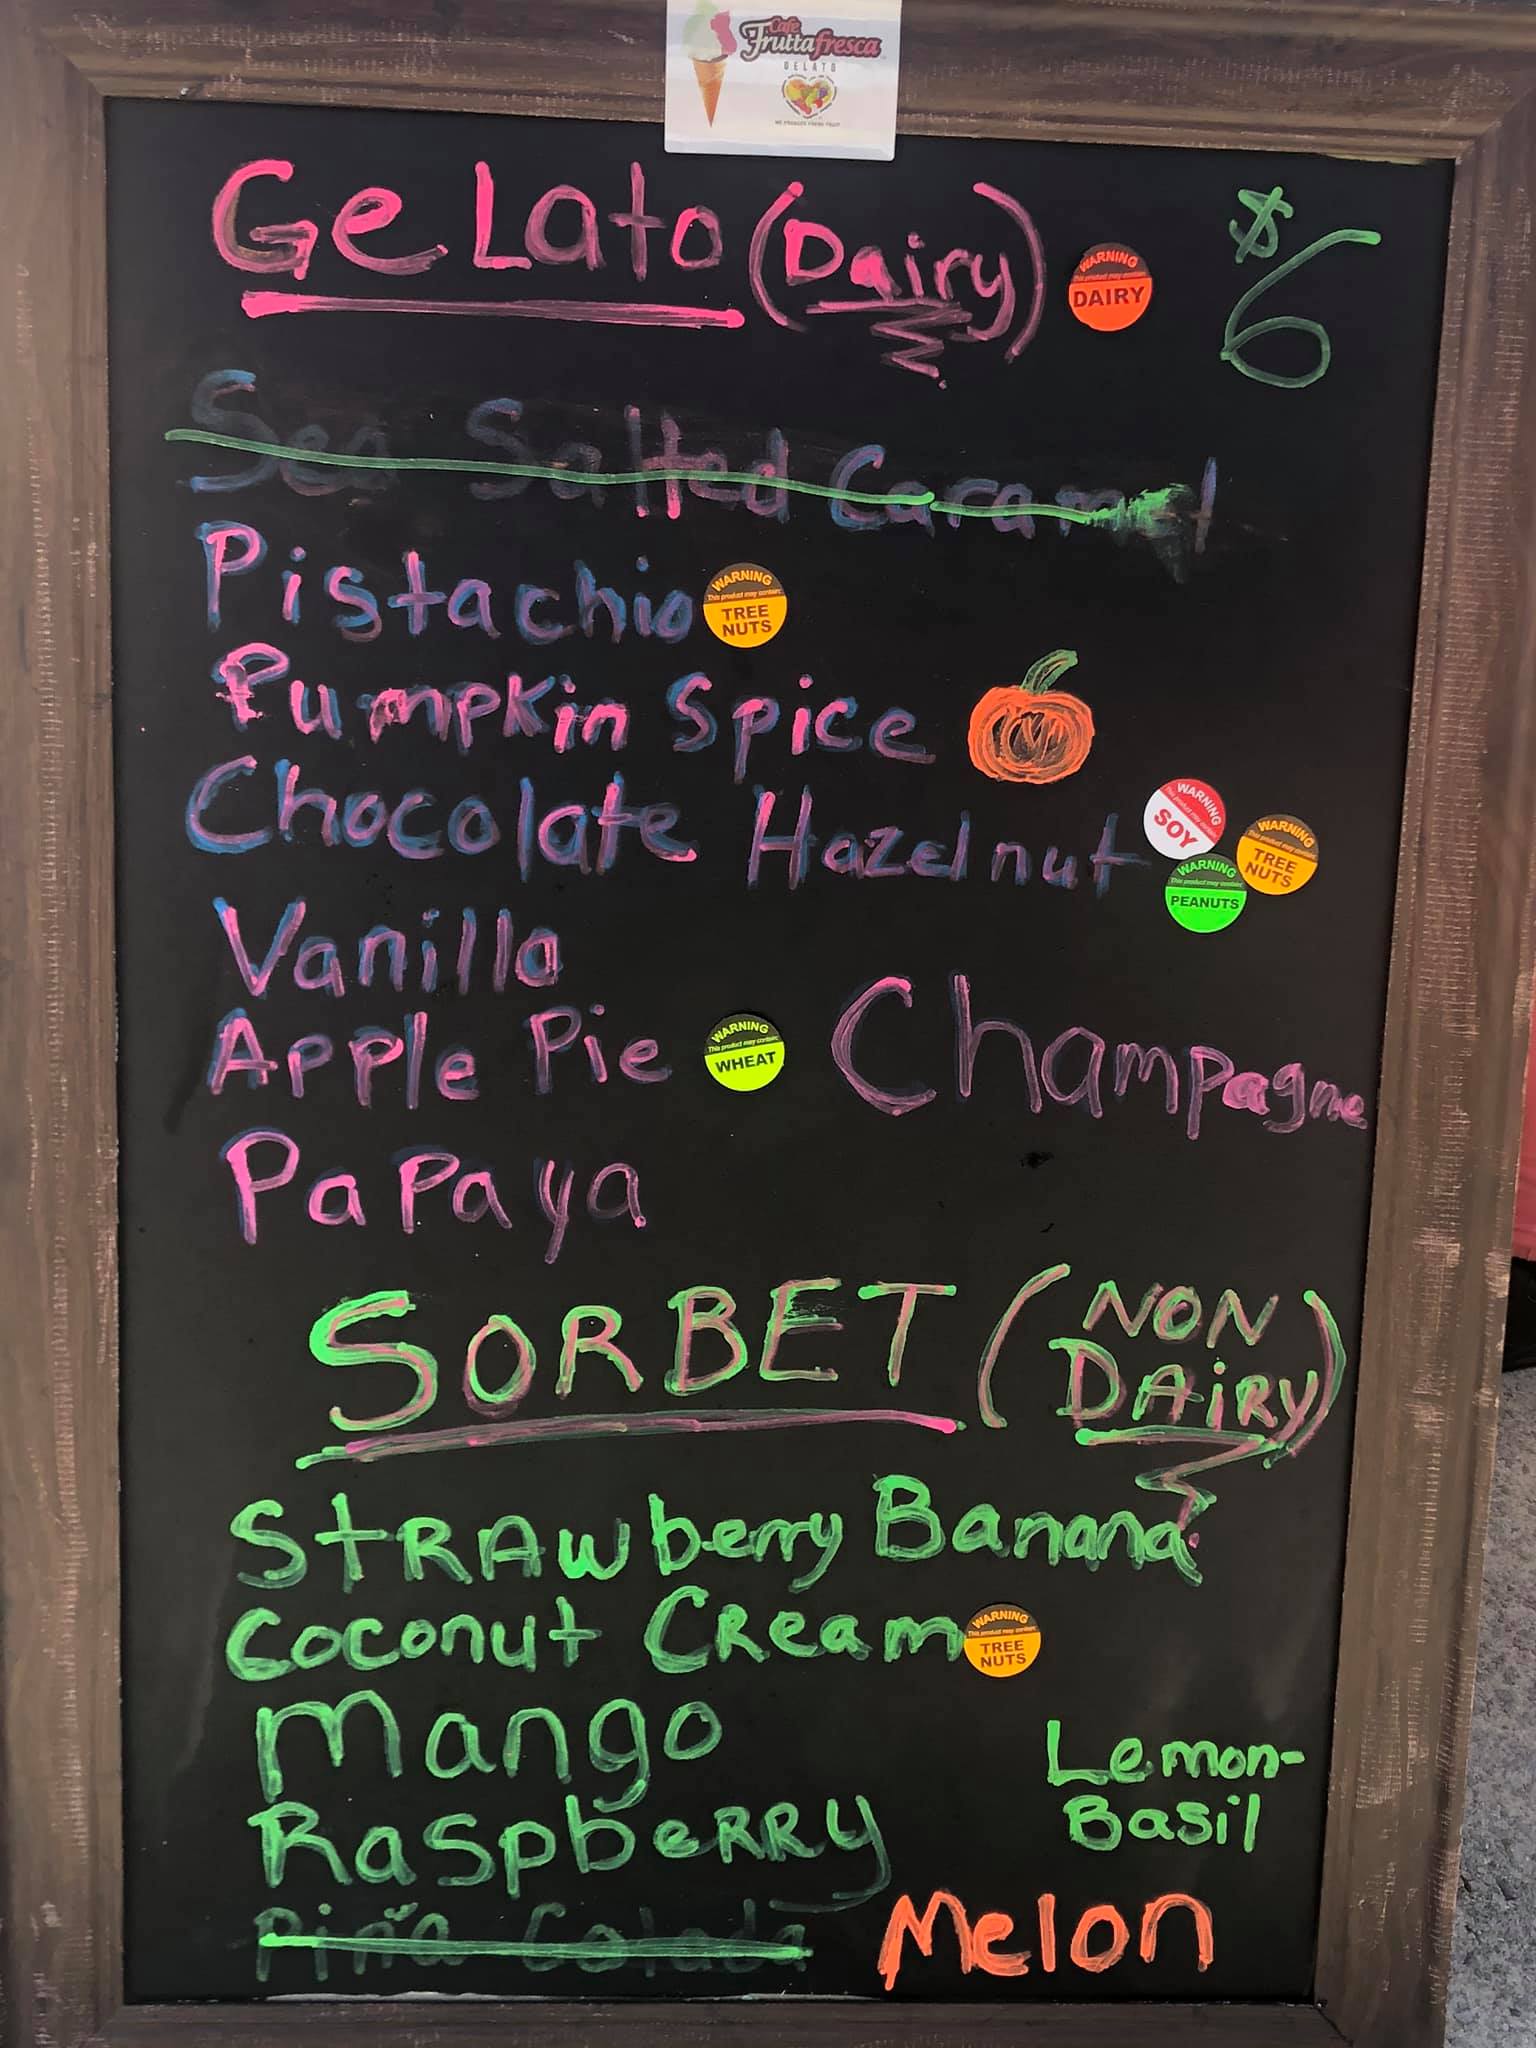 Cafe
Fruttafresca
GELATO
GeLato (Dairy)
WARNING
This product may contain:
DAIRY
$6
Sea Salted Caramel
Pistachio
WARNING
This product may contain:
TREE
NUTS
Pumpkin Spice
Chocolate Hazelnut
WARNING
This product may contain:
SOY
WARNING
This product may contain:
TREE
NUTS
WARNING
This product may contain:
PEANUTS
Vanilla
Apple Pie
WARNING
This product may contain:
WHEAT
Champagne
Papaya
SORBET (NON
DAiRY)
StRAwberry Banana
Coconut CReam
WARNING
This product may contain:
TREE
NUTS
Mango
Lemon-
Basil
RaspbeRRy
Piña Colada
Melon